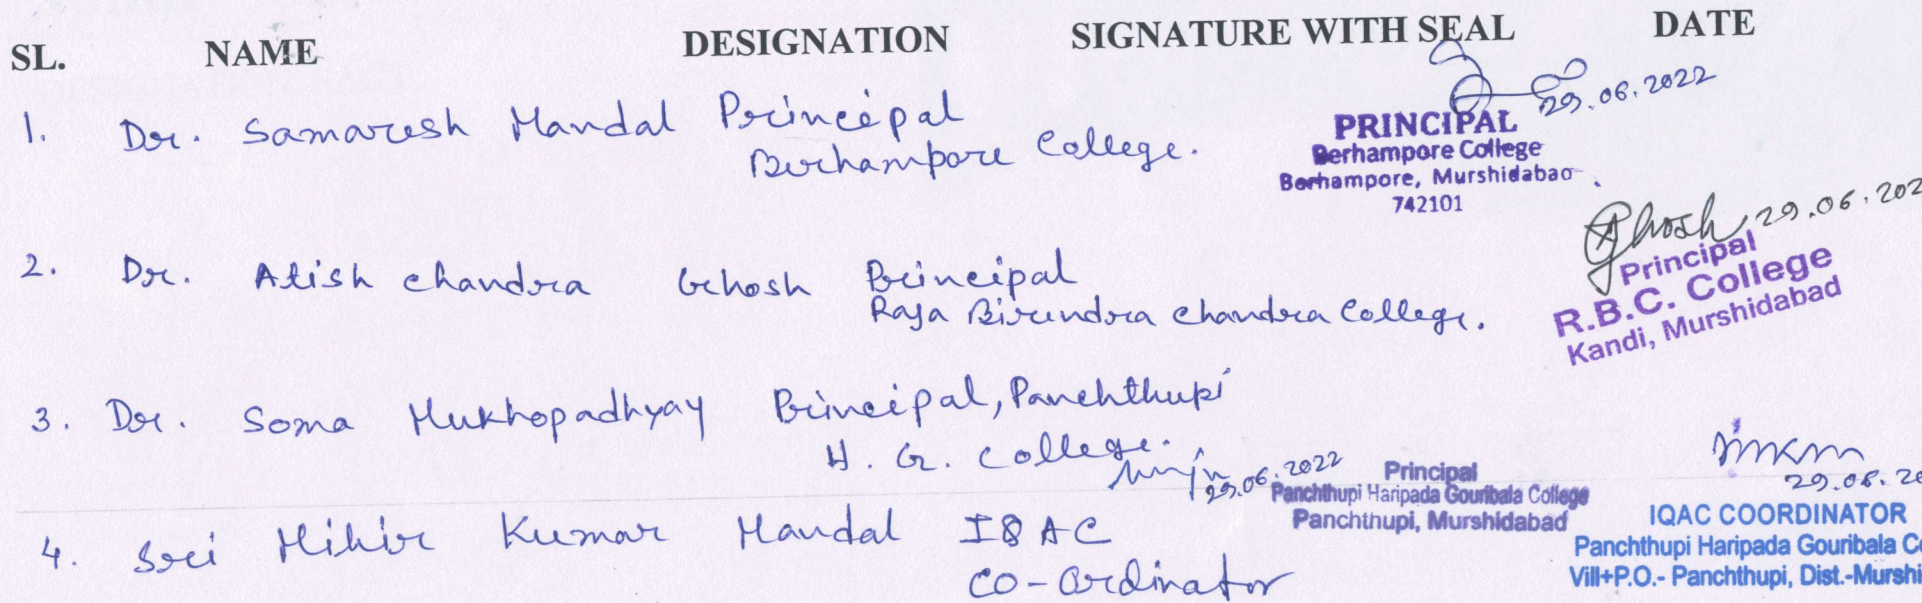 SL. NAME DESIGNATION SIGNATURE WITH SEAL DATE
1. Dr. Samaresh Mandal Principal
Berhampore College.
29.06.2022
PRINCIPAL
Berhampore College
Berhampore, Murshidabad
742101
2. Dr. Atish Chandra Ghosh Principal
Raja Birendra Chandra College.
Ghosh 29.06.202
Principal
R.B.C. College
Kandi, Murshidabad
3. Dr. Soma Mukhopadhyay Principal, Panchthupi
H. G. College.
29.06.2022
Principal
Panchthupi Haripada Gouribala College
Panchthupi, Murshidabad
4. Sri Mihir Kumar Mandal IQAC
Co-ordinator
29.06.20
IQAC COORDINATOR
Panchthupi Haripada Gouribala Co
Vill+P.O.- Panchthupi, Dist.-Murshi